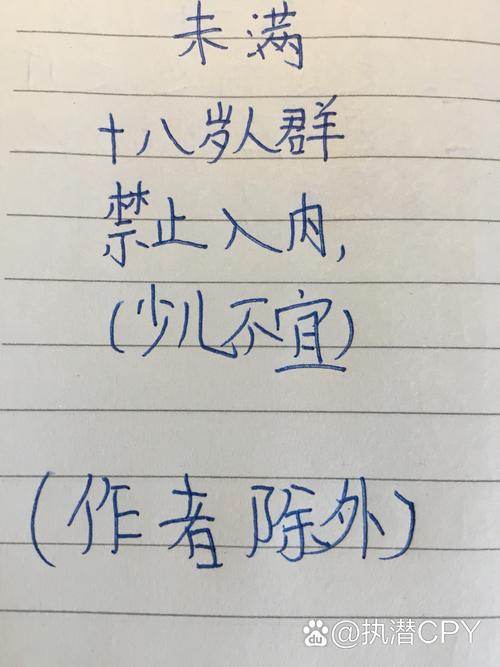 未满
十八岁人群
禁止入内,
(少儿不宜)
(作者除外)
Baidu@执潜CPY